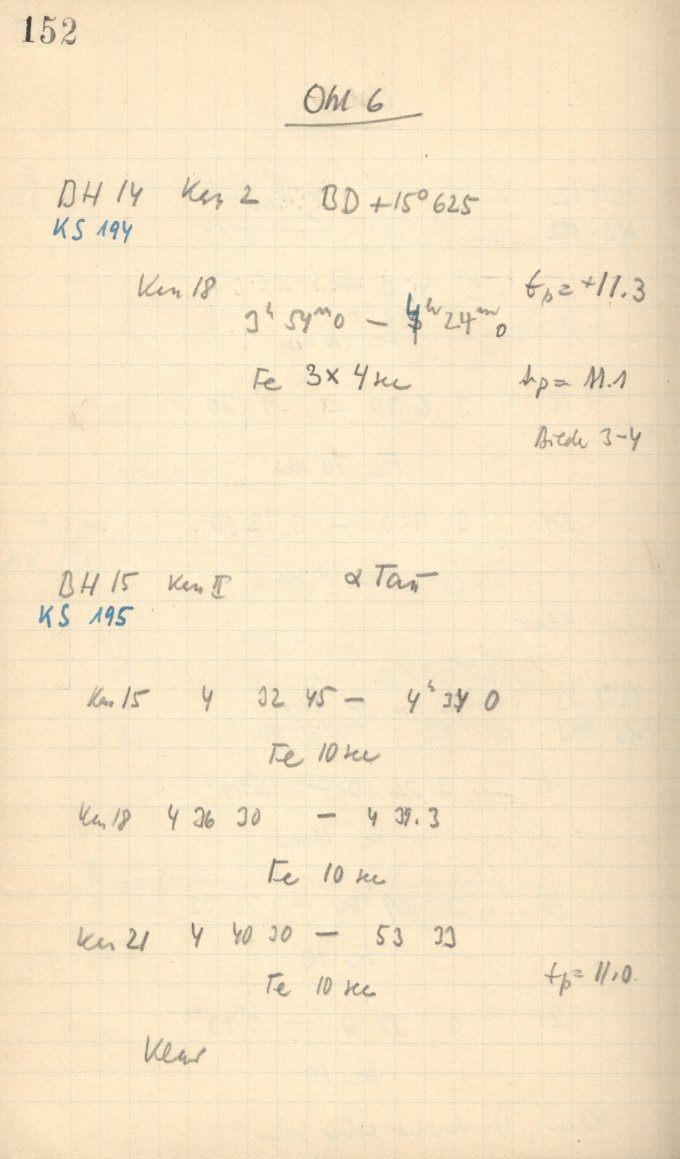 152
Ohl 6
BH 14 Kam 2 BD +15° 625
KS 194
Kam 18 tp = +11.3
3h 54m 0 — 4h 24m 0
Fe 3 x 4 sec tp = 11.1
Bilder 3-4
BH 15 Kam II α Tau
KS 195
Kam 15 4 32 45 — 4h 34 0
Fe 10 sec
Kam 18 4 36 30 — 4 39.3
Fe 10 sec
Kam 21 4 40 30 — 53 33
Fe 10 sec tp = 11.0
Klar